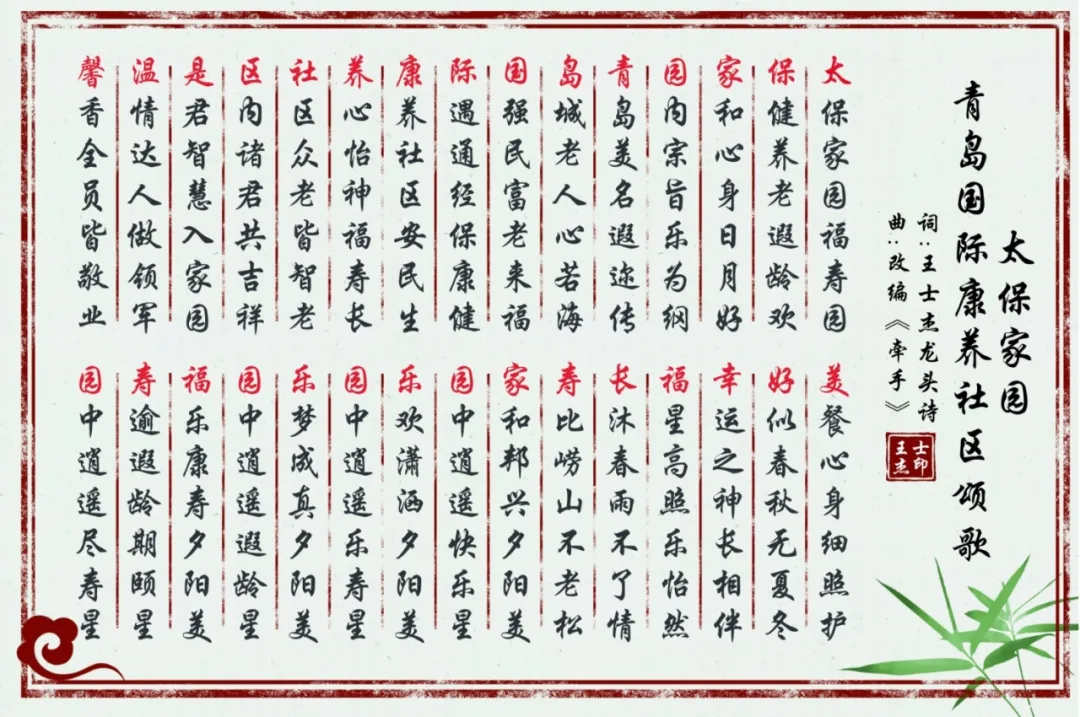 太保家园
青岛国际康养社区颂歌
词:王士杰龙头诗
曲:改编《牵手》
王士杰印
太保家园福寿园
保健养老遐龄欢
家和心身日月好
园内宗旨乐为纲
青岛美名遐迩传
岛城老人心若海
国强民富老来福
际遇通经保康健
康养社区安民生
养心怡神福寿长
社区众老皆智老
区内诸君共吉祥
是君智慧入家园
温情达人做领军
馨香全员皆敬业
美餐心身细照护
好似春秋无夏冬
幸运之神长相伴
福星高照乐怡然
长沐春雨不了情
寿比崂山不老松
家和邦兴夕阳美
园中逍遥快乐星
乐欢潇洒夕阳美
园中逍遥乐寿星
乐梦成真夕阳美
园中逍遥遐龄星
福乐康寿夕阳美
寿逾遐龄期颐星
园中逍遥尽寿星